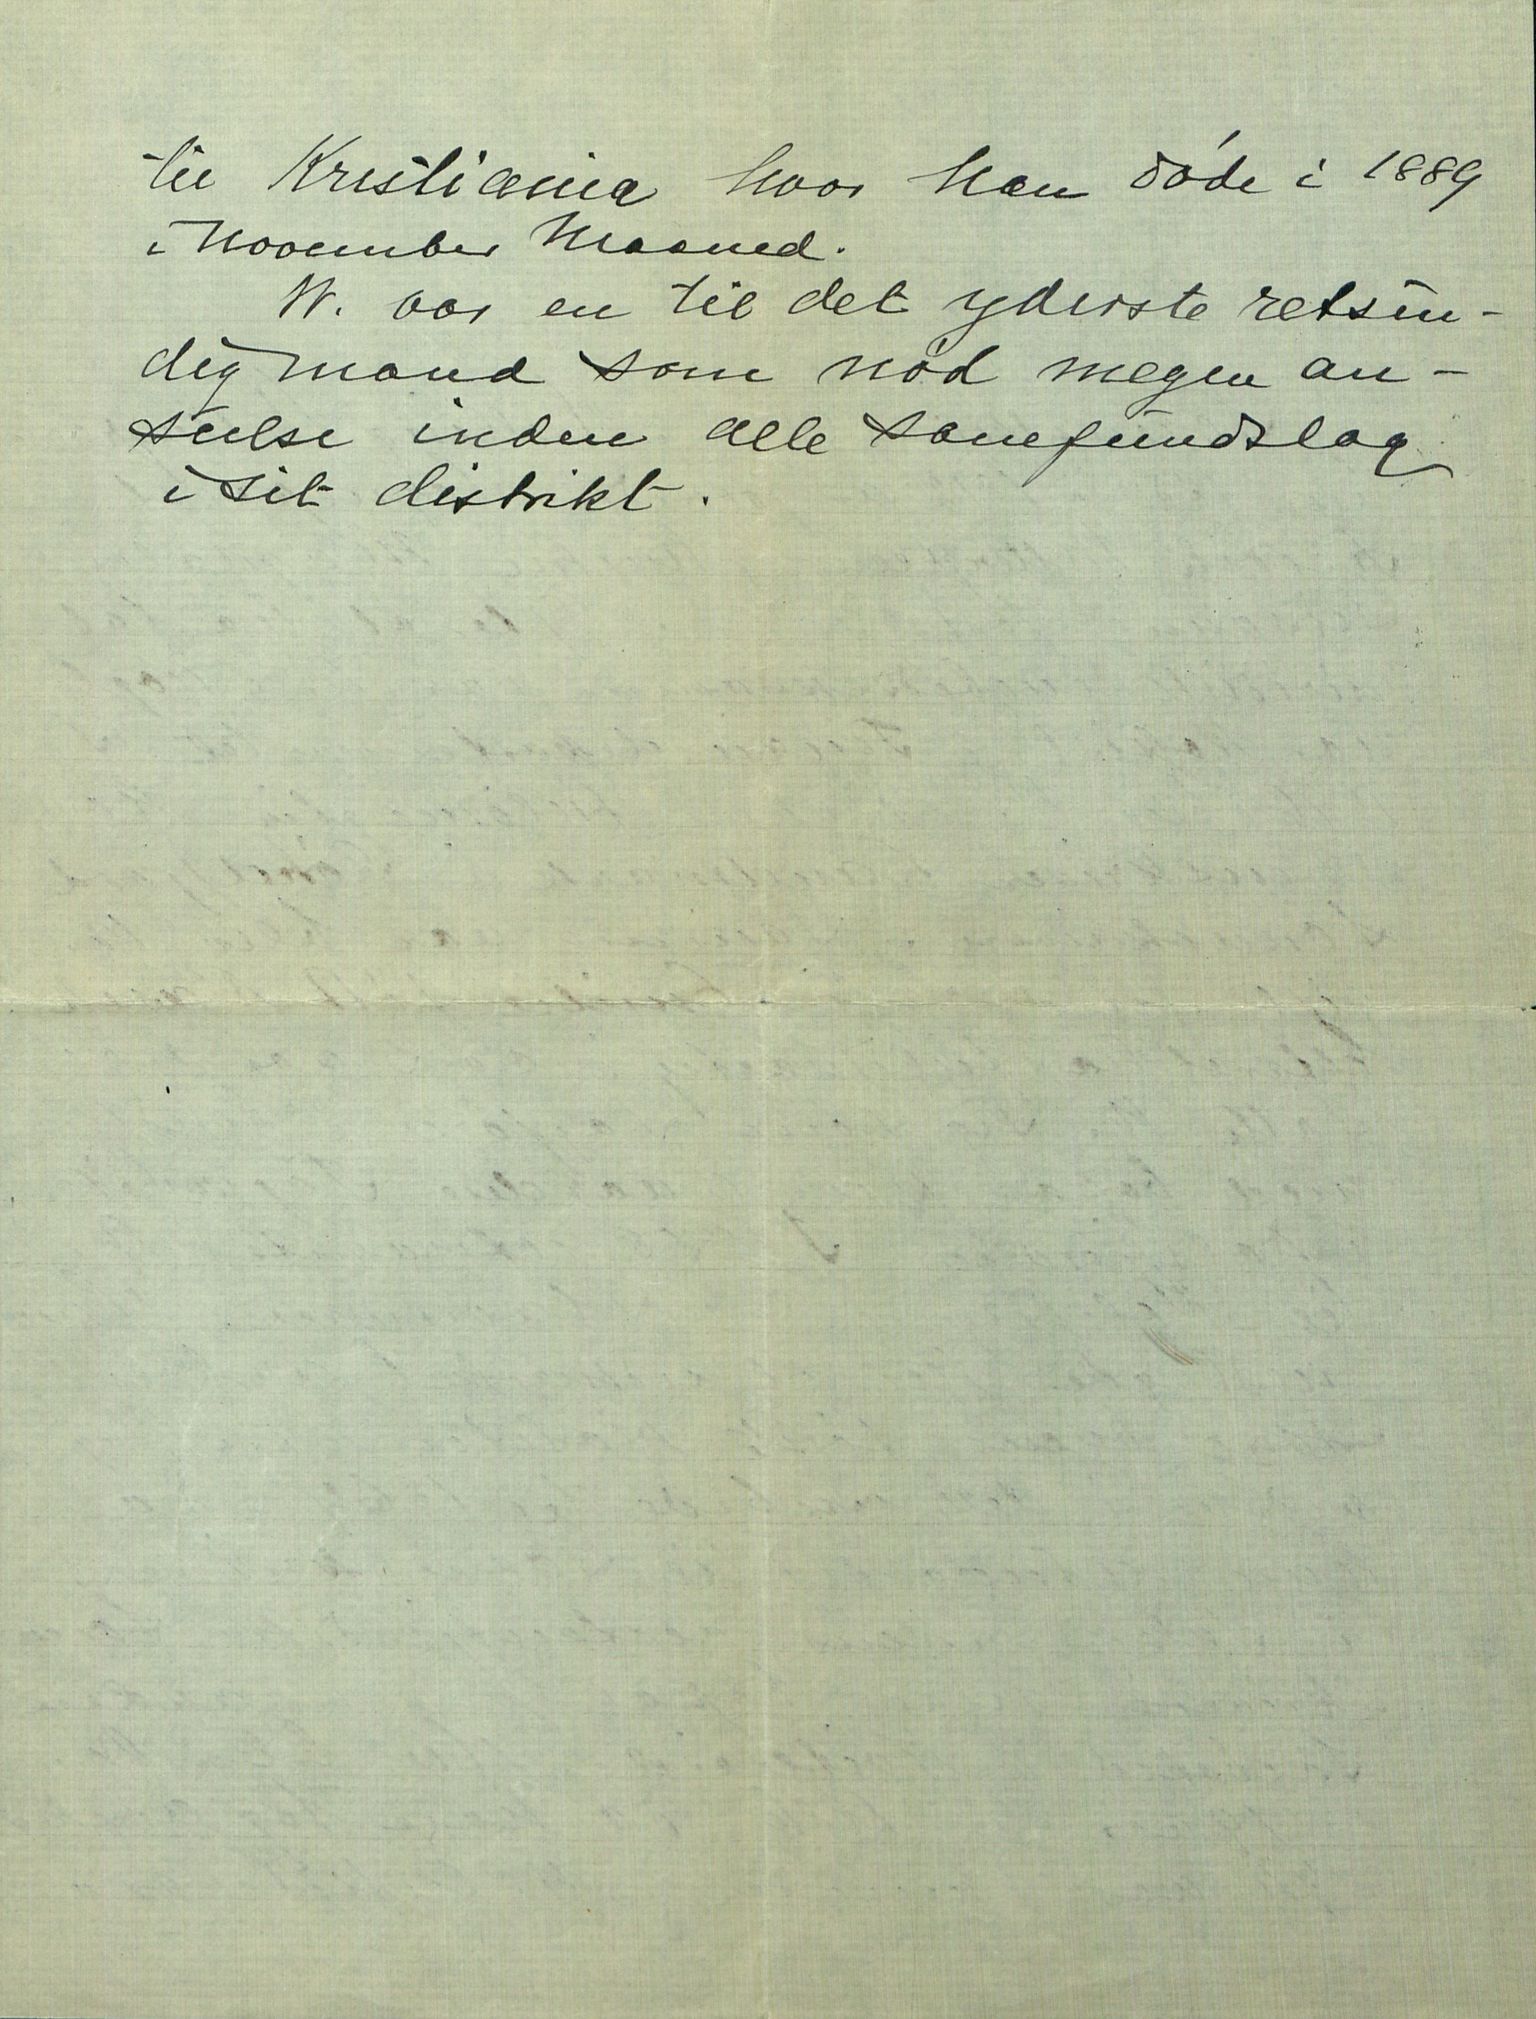 til Kristiania hvor han døde i 1889
i November Maaned.
W. var en til det yderste retsin-
dig mand som nød megen an-
seelse inden alle samfundslag
i sit distrikt.